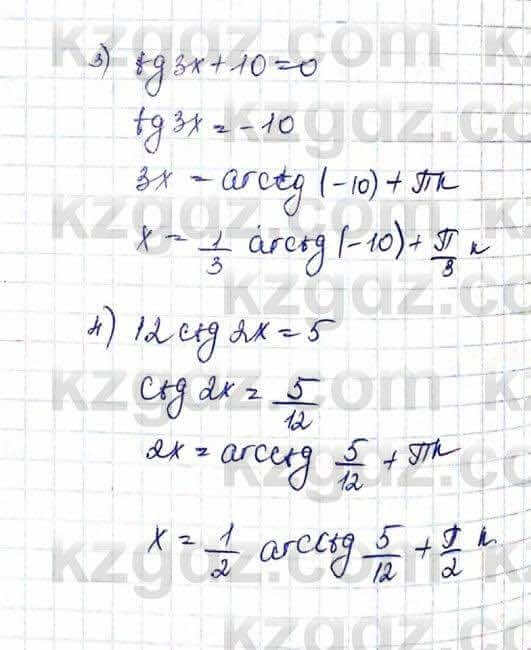 3) tg 3x + 10 = 0
tg 3x = -10
3x = arctg (-10) + πk
x = 1/3 arctg (-10) + π/3 k
4) 12 ctg 2x = 5
ctg 2x = 5/12
2x = arcctg 5/12 + πk
x = 1/2 arcctg 5/12 + π/2 k
kzgdz.com